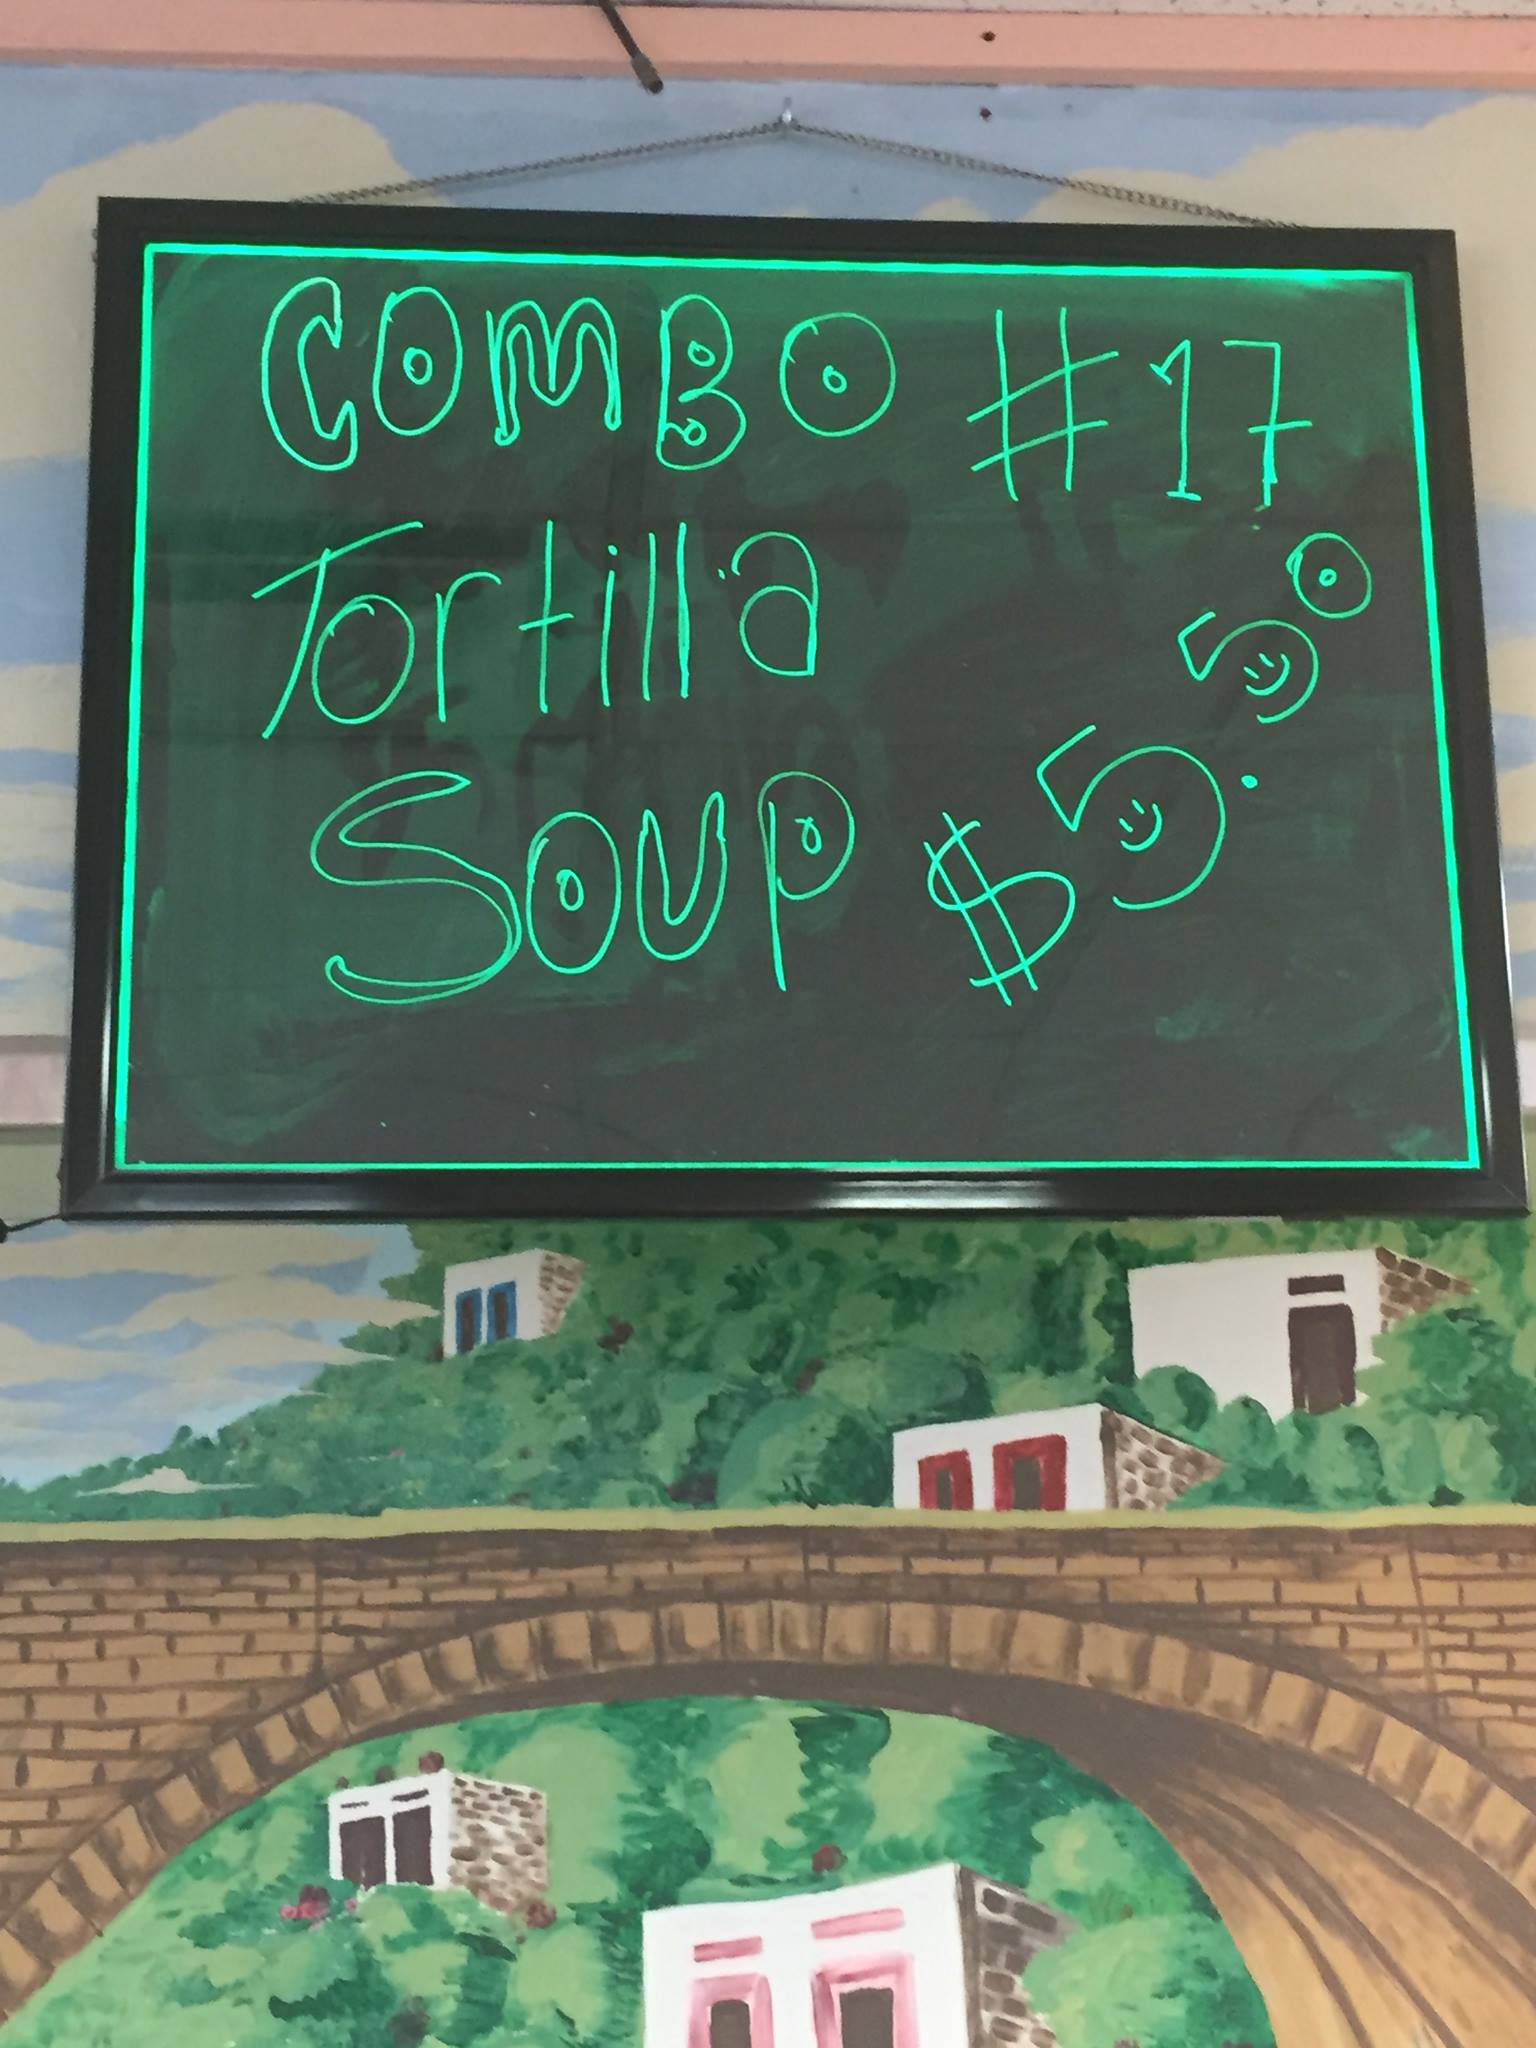 COMBO #17
Tortilla
Soup $5.50